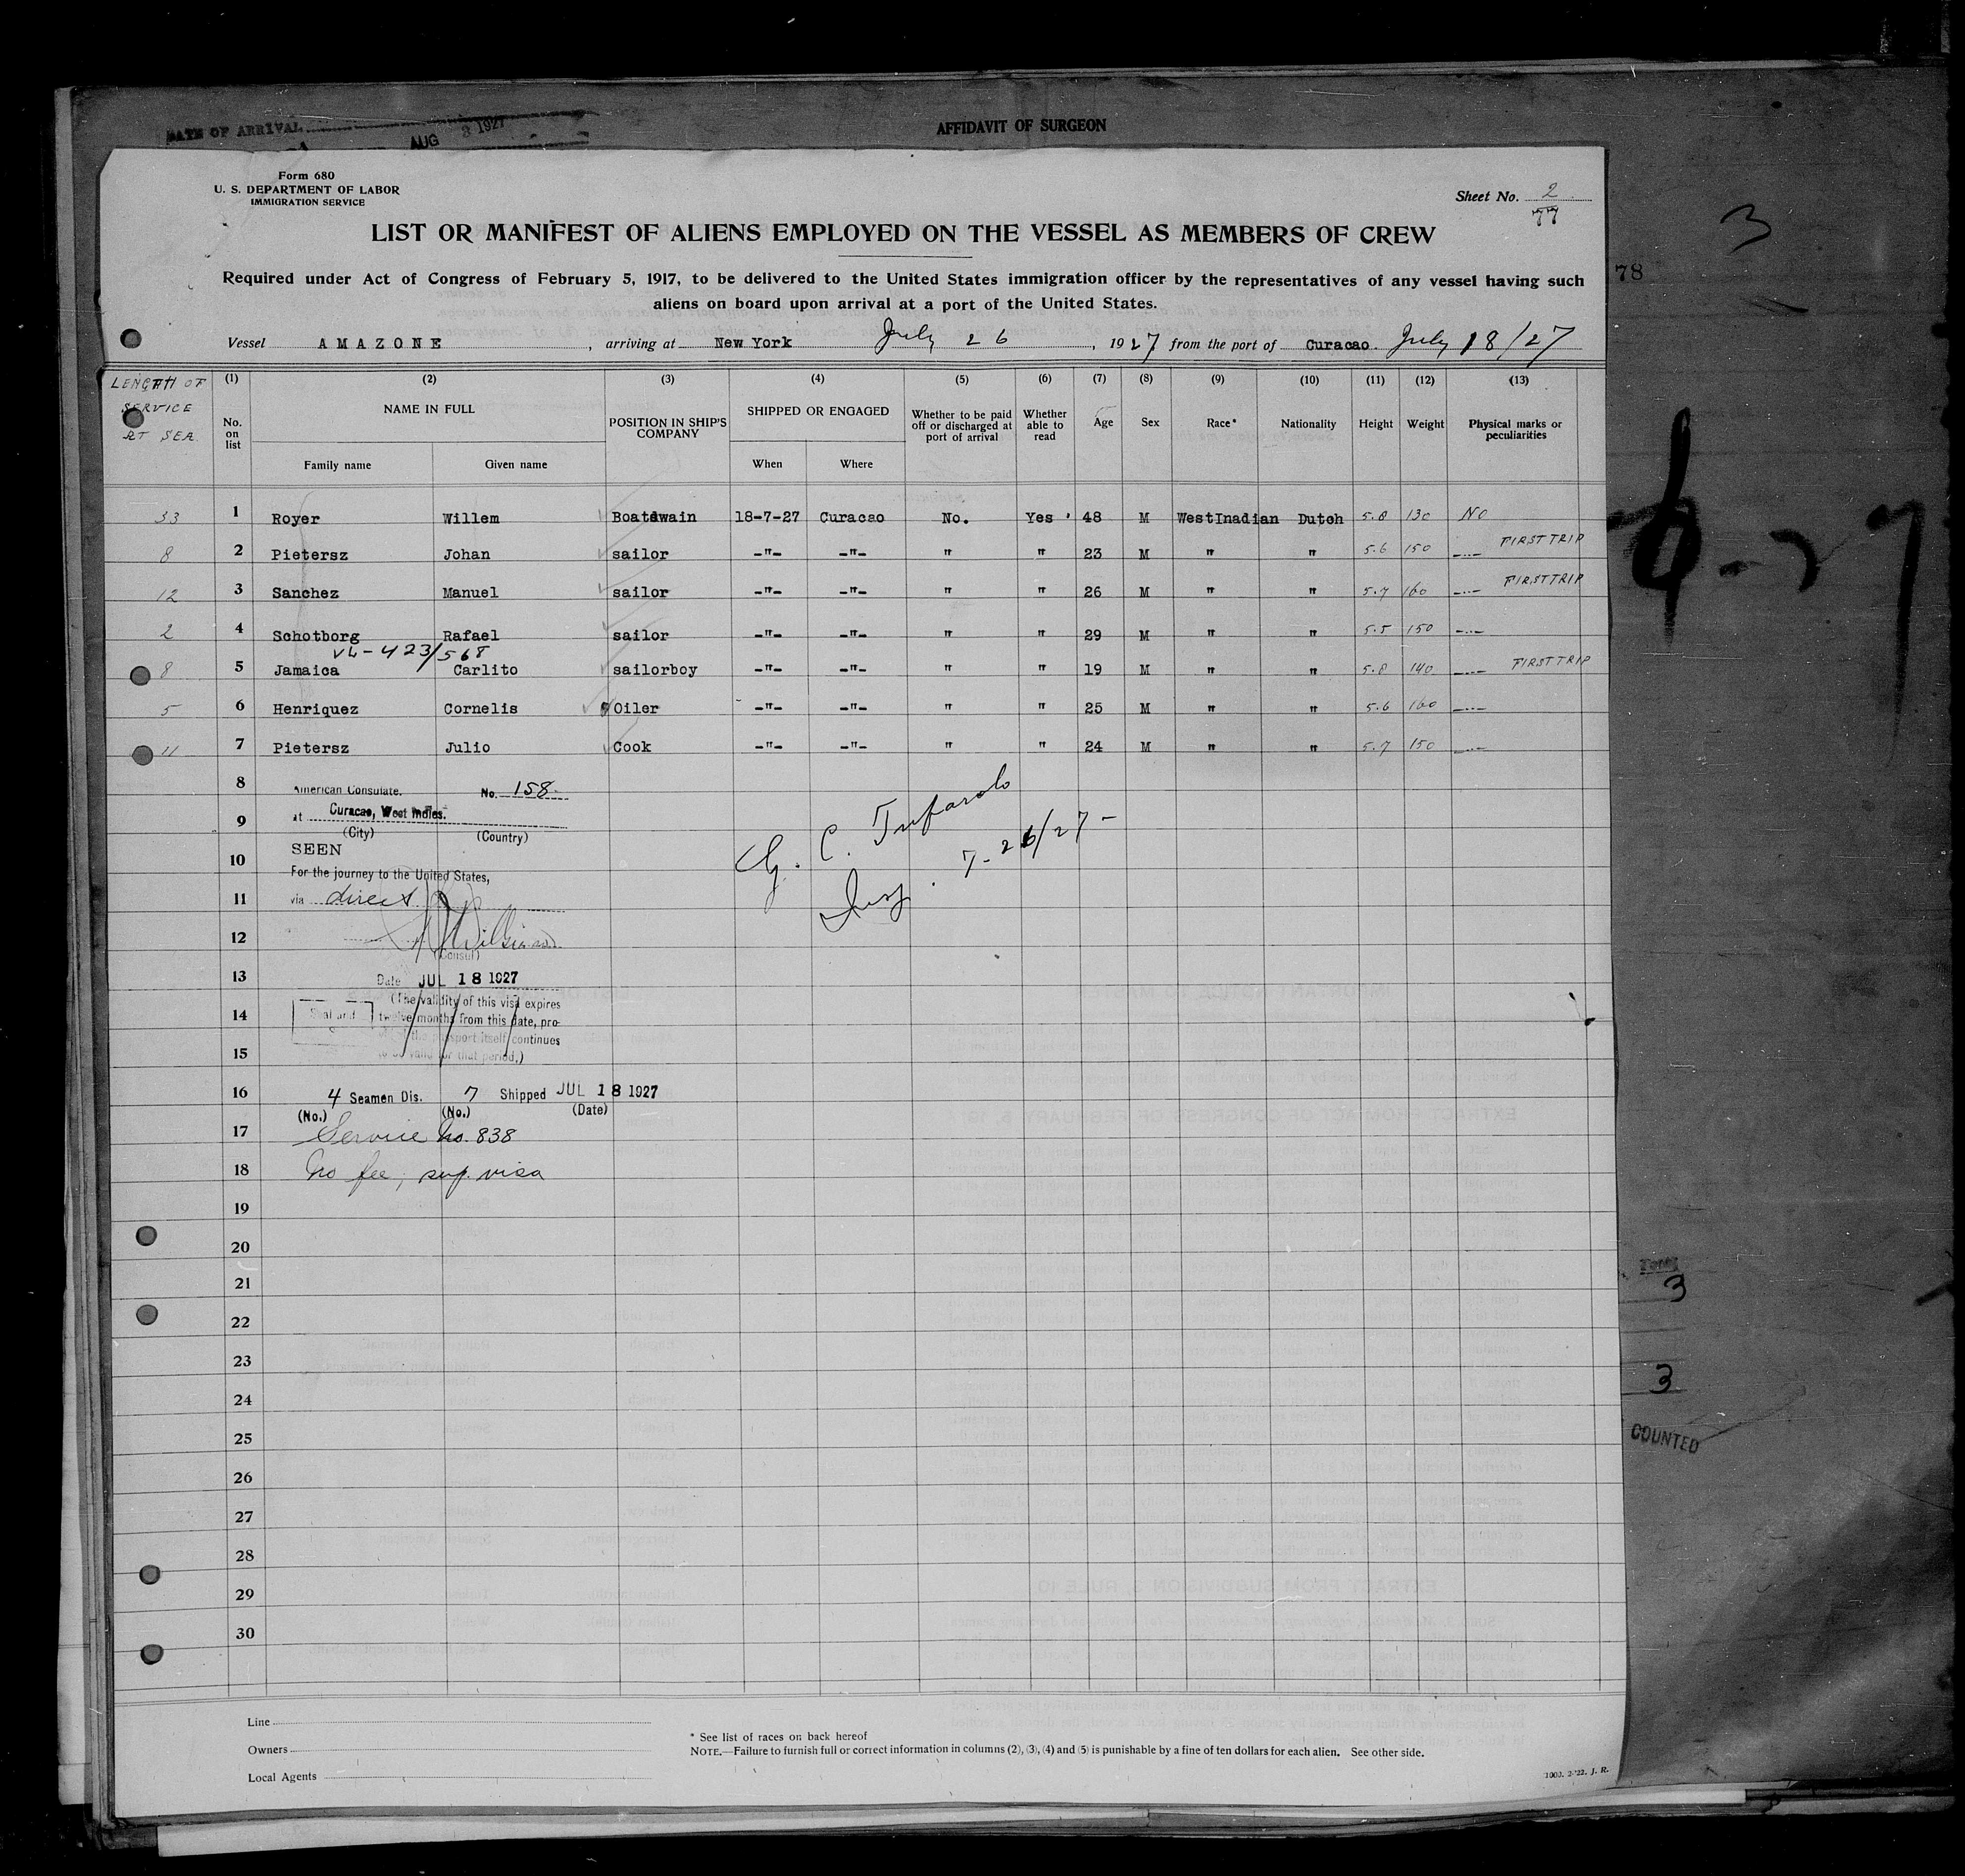 DATE OF ARRIVAL
AUG 3 1927
AFFIDAVIT OF SURGEON
Form 680
U. S. DEPARTMENT OF LABOR
IMMIGRATION SERVICE
Sheet No. 2
77
3
78
LIST OR MANIFEST OF ALIENS EMPLOYED ON THE VESSEL AS MEMBERS OF CREW
Required under Act of Congress of February 5, 1917, to be delivered to the United States immigration officer by the representatives of any vessel having such
aliens on board upon arrival at a port of the United States.
Vessel AMAZONE, arriving at New York July 26, 1927 from the port of Curacao. July 18/27
LENGTH OF SERVICE AT SEA
(1) (2) (3) (4) (5) (6) (7) (8) (9) (10) (11) (12) (13)
No. on list NAME IN FULL POSITION IN SHIP'S COMPANY SHIPPED OR ENGAGED Whether to be paid off or discharged at port of arrival Whether able to read Age Sex Race* Nationality Height Weight Physical marks or peculiarities
Family name Given name When Where
33 1 Royer Willem Boatswain 18-7-27 Curacao No. Yes 48 M WestInadian Dutch 5.8 130 NO
8 2 Pietersz Johan sailor -"- -"- " " 23 M " " 5.6 150 -"- FIRST TRIP
12 3 Sanchez Manuel sailor -"- -"- " " 26 M " " 5.7 160 -"- FIRST TRIP
2 4 Schotborg Rafael sailor -"- -"- " " 29 M " " 5.5 150 -"-
VL-423/568
8 5 Jamaica Carlito sailorboy -"- -"- " " 19 M " " 5.8 140 -"- FIRST TRIP
5 6 Henriquez Cornelis Oiler -"- -"- " " 25 M " " 5.6 160 -"-
11 7 Pietersz Julio Cook -"- -"- " " 24 M " " 5.7 150 -"-
8 American Consulate. No. 158
9 at Curacao, West Indies.
(City) (Country)
10 SEEN
For the journey to the United States,
11 via direct
12
(Consul)
G. C. Tufarolo
Insp. 7-26/27-
13 Date JUL 18 1927
(The validity of this visa expires
14 Seal and twelve months from this date, pro-
the passport itself continues
15 to be valid for that period.)
16 4 Seamen Dis. 7 Shipped JUL 18 1927
(No.) (No.) (Date)
17 Service No. 838
18 No fee, sup. visa
19
20
21
22
23
24
25
26
27
28
29
30
Total
3
3
COUNTED
Line
Owners
Local Agents
* See list of races on back hereof
NOTE.—Failure to furnish full or correct information in columns (2), (3), (4) and (5) is punishable by a fine of ten dollars for each alien. See other side.